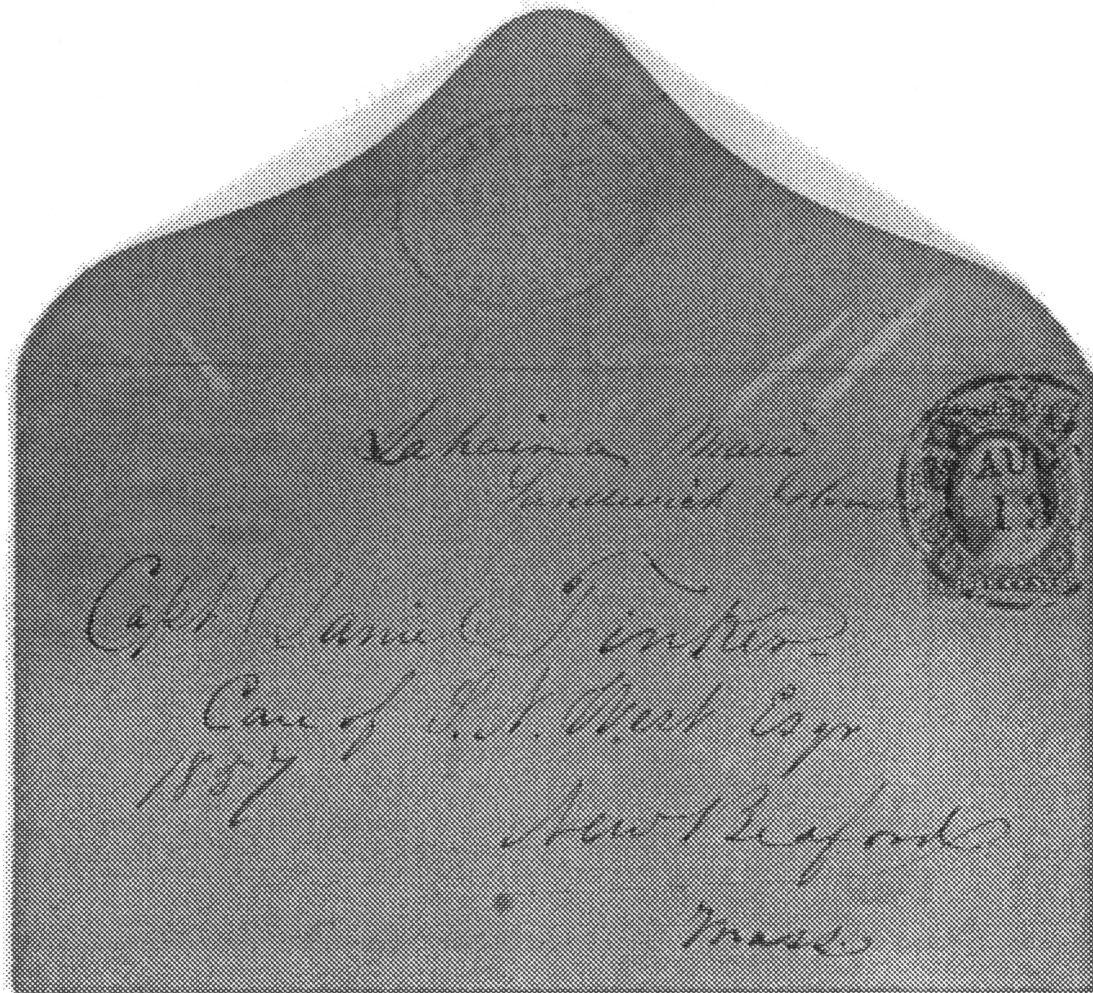 Lahaina Maui
Sandwich Islands
AUG
Capt. Jamie Tinker
Care of Esqr
1857
New Bedford
Mass.